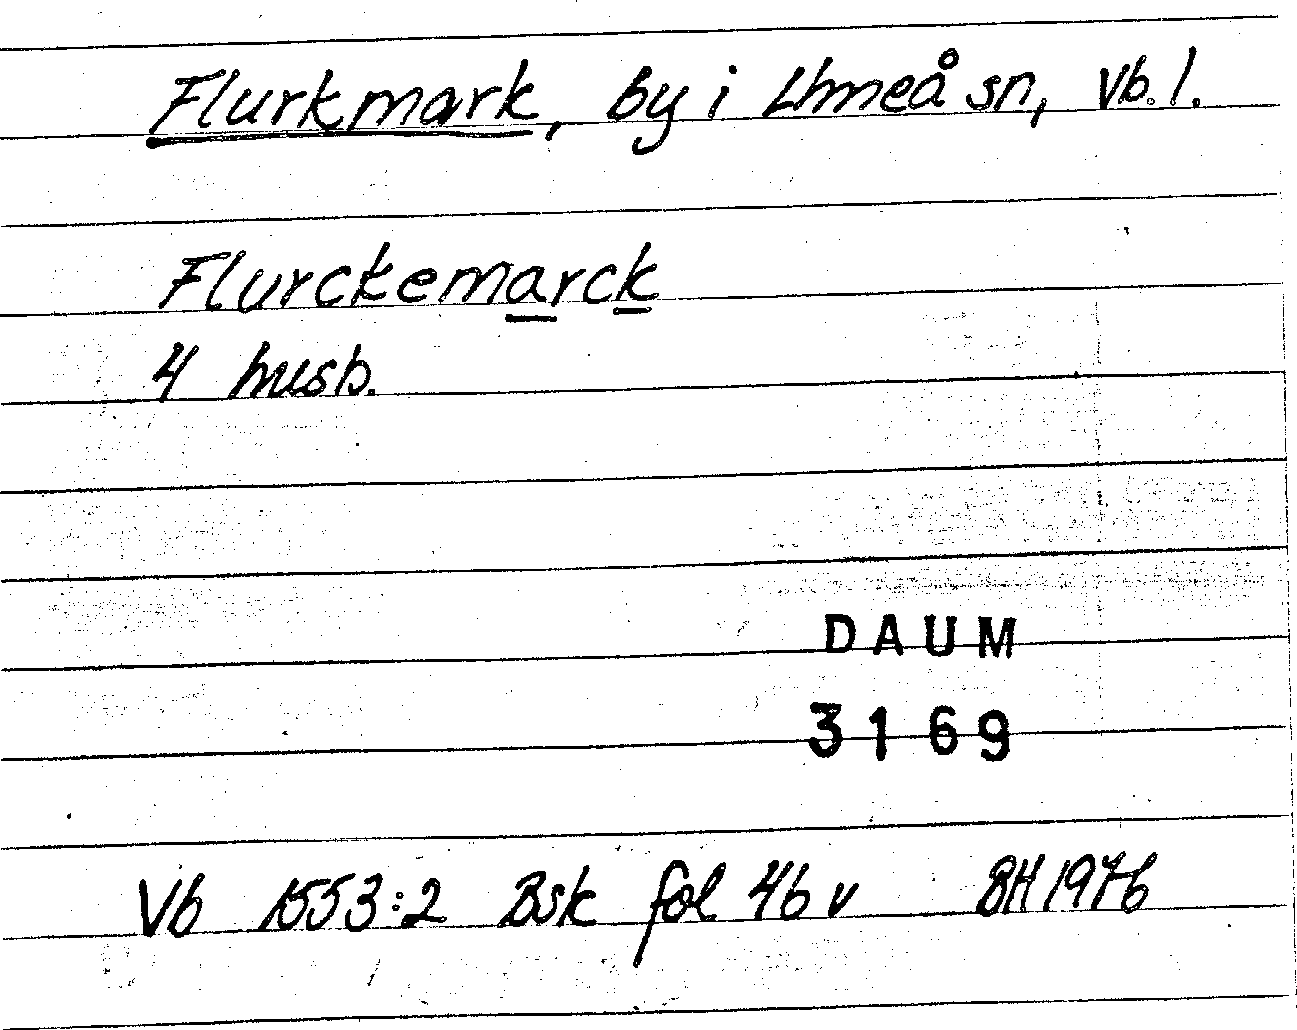 Flurkmark, by i Umeå sn, Vb. l.
Flurckemarck
4 husb.
DAUM
3169
Vb 1553:2 Bsk fol 46 v BH 1976